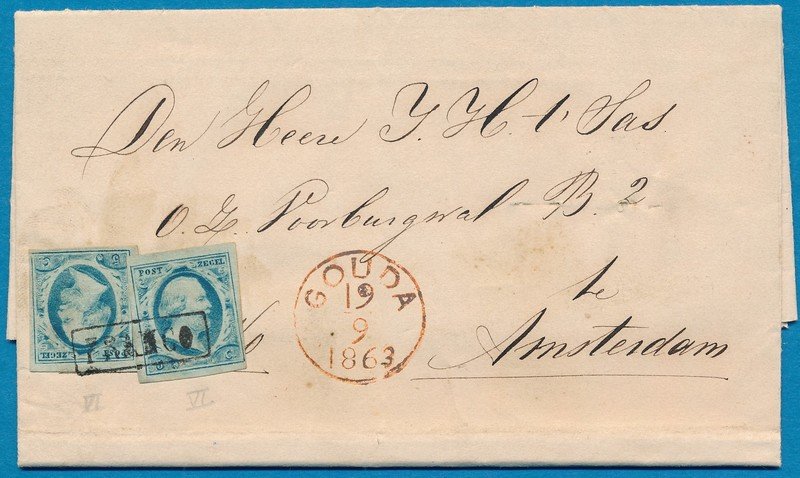 Den Heere J. H. 
O. Z. Voorburgwal B. 2
te
Amsterdam
GOUDA
19
9
1863
POST ZEGEL
POST ZEGEL
FRANCO
VI
VI